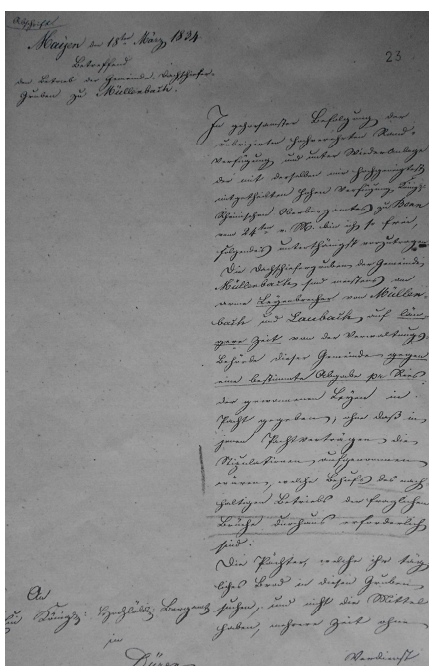 Abschrift
Mayen den 18ten März 1834.
23
Betreffend
den Betrieb der Gemeinde Dachschiefer-
Gruben zu Müllenbach.
In gehorsamster Befolgung der
Verfügung und unter Wiederanlage
der mit derselben mir hochgeneigtest
mitgetheilten hohen Verfügung Königl:
Rheinischen Oberbergamtes zu Bonn
vom 24ten v. M. bin ich so frei,
folgendes unterthänigst vorzutragen
Die Dachschiefergruben der Gemeinde
Müllenbach, sind meistens an
arme Leyenbrecher von Müllen-
bach und Laubach, auf län-
gere Zeit von der Verwaltungs
Behörde dieser Gemeinde gegen
eine bestimmte Abgabe pr Ries
der gewonnenen Leyen in
Pacht gegeben, ohne daß in
jenen Pachtverträgen die
Stipulationen aufgenommen
wären, welche Behufs des nach
haltigen Betriebs der fraglichen
Brüche durchaus erforderlich
sind.
Die Pächter, welche ihr täg
liches Brod in diesen Gruben
suchen, und nicht die Mittel
haben, mehrere Zeit ohne
Verdienst
An
Königl: Hochlöbl: Bergamt
in
Düren